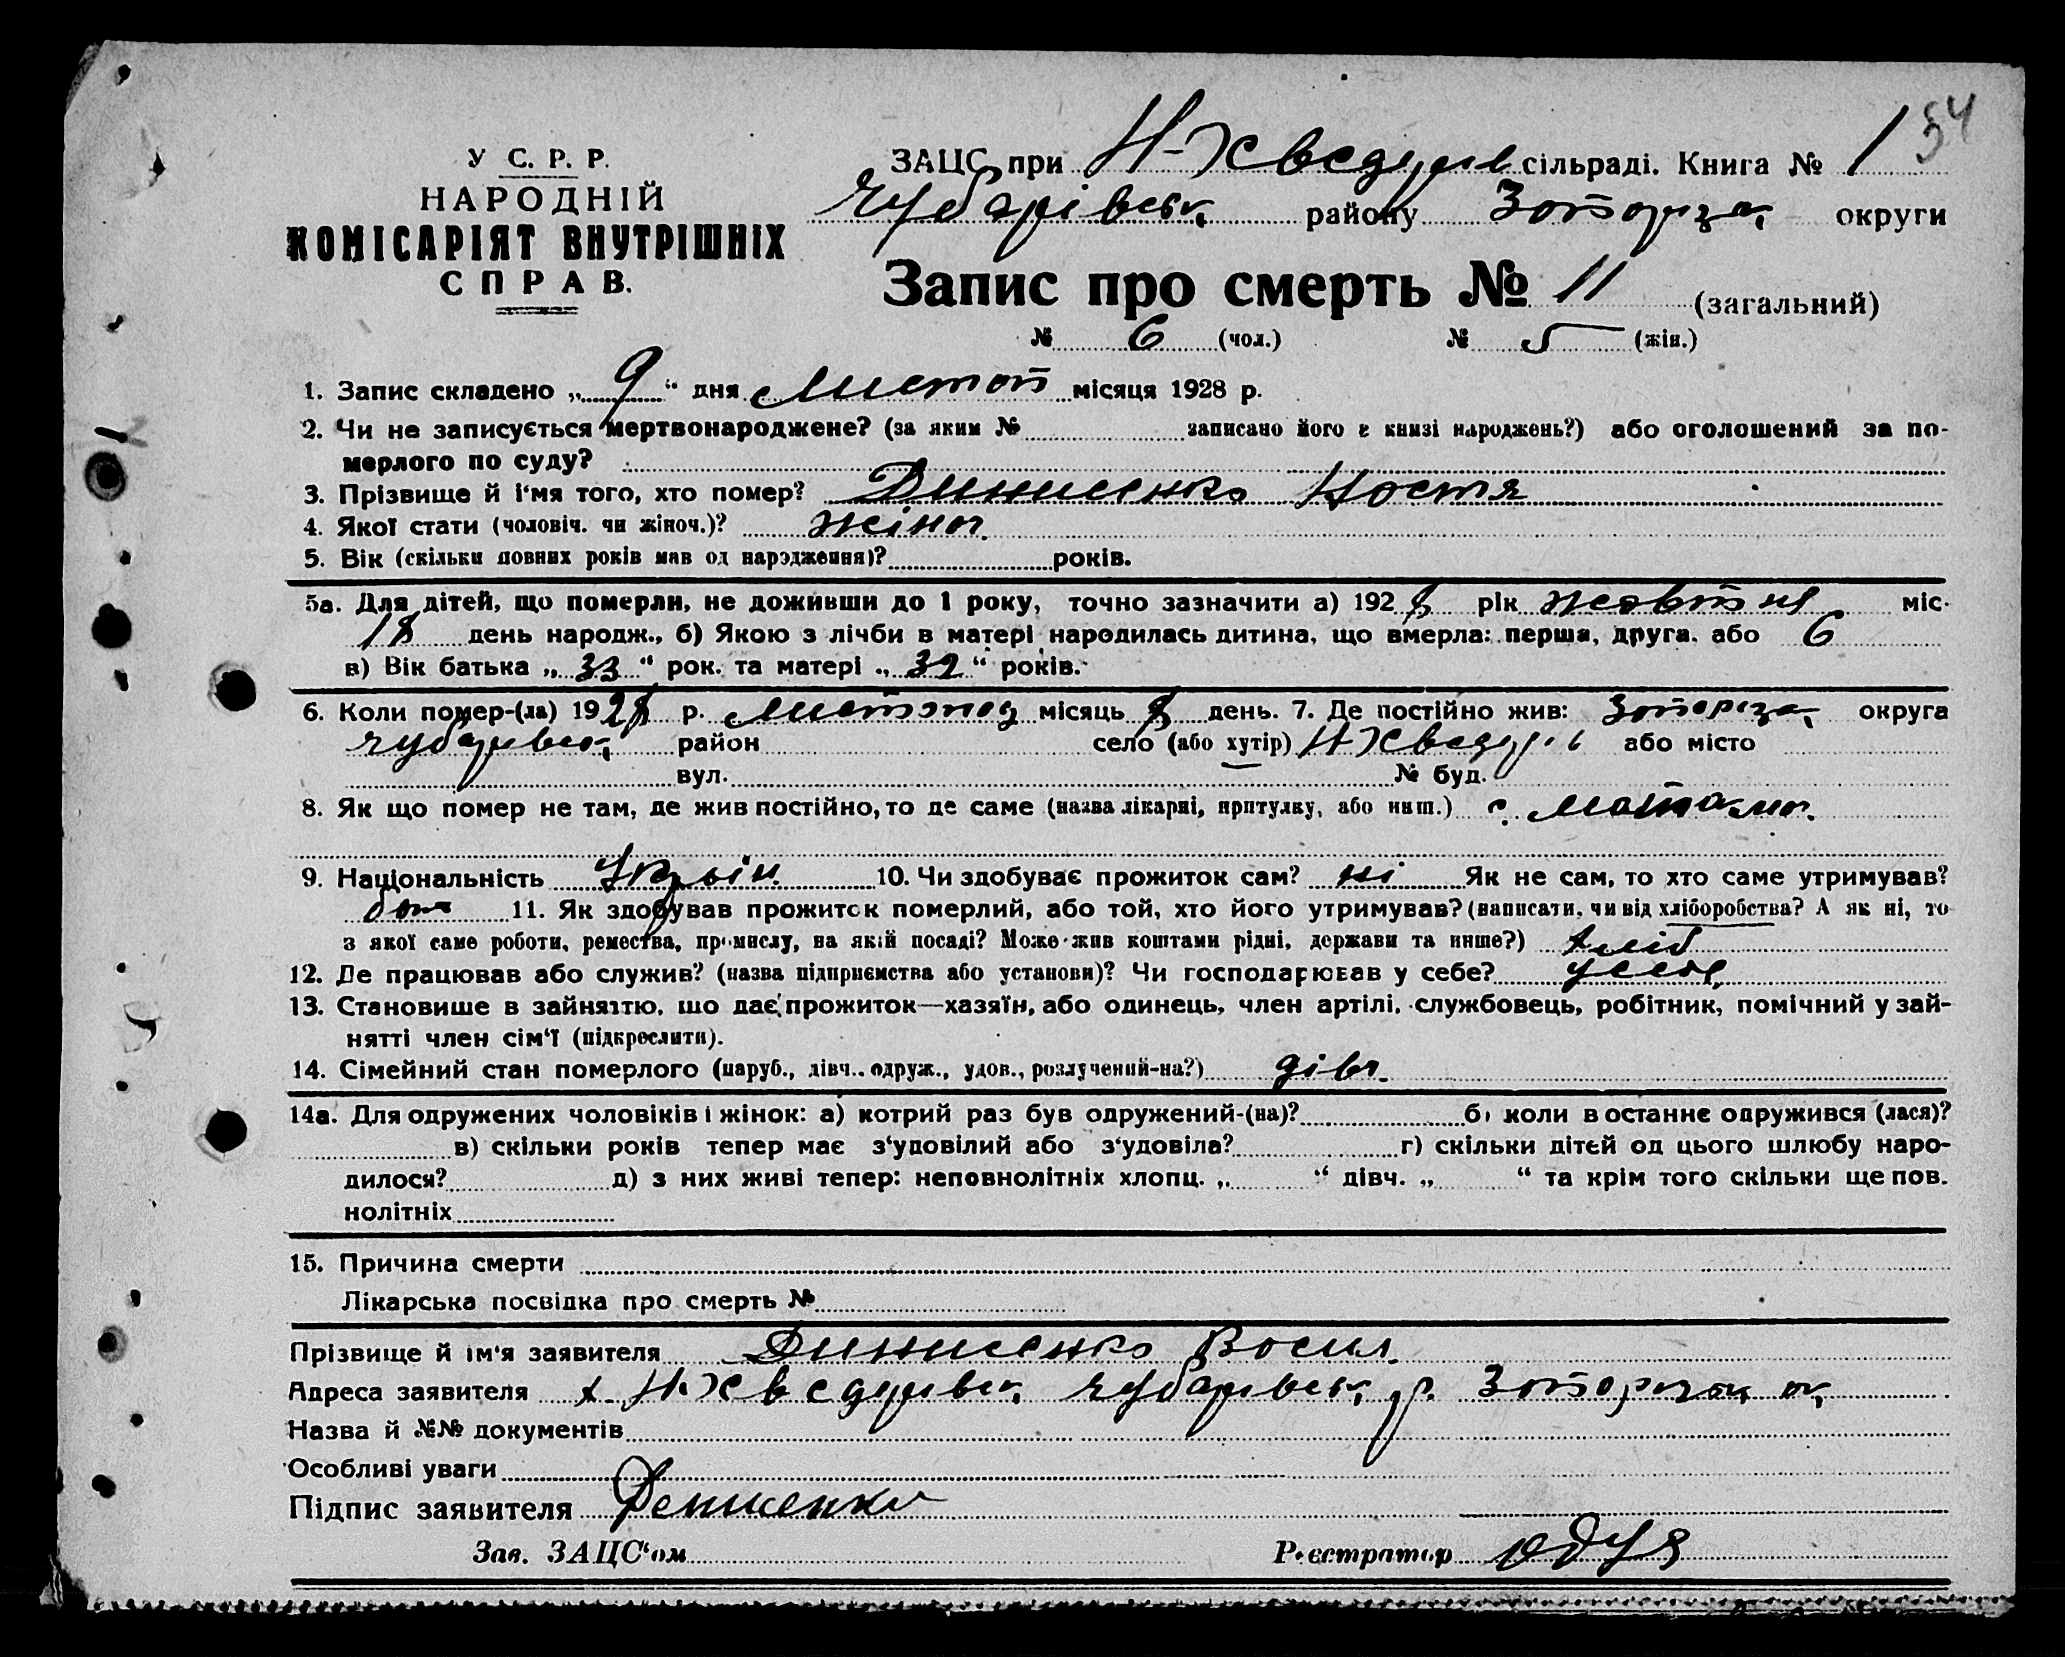 54
У С. Р. Р.
НАРОДНІЙ
КОМІСАРІЯТ ВНУТРІШНІХ
СПРАВ.
ЗАЦС при Н-Хведорів сільраді. Книга № 1
Чубарівськ району Запоріз. округи
Запис про смерть № 11 (загальний)
№ 6 (чол.) № 5 (жін.)
1. Запис складено „ 9 “ дня Листоп місяця 1928 р.
2. Чи не записується мертвонароджене? (за яким № записано його в книзі народжень?) або оголошений за по-
мерлого по суду?
3. Прізвище й і'мя того, хто помер? Динисенко Костя
4. Якої стати (чоловіч. чи жіноч.)? жіноч.
5. Вік (скільки повних років мав од народження)? років.
5а. Для дітей, що померли, не доживши до 1 року, точно зазначити а) 1928 рік жовтня міс.
18 день народж., б) Якою з лічби в матері народилась дитина, що вмерла: перша, друга. або 6
в) Вік батька „ 33 “ рок. та матері „ 32 “ років.
6. Коли помер-(ла) 1928 р. листопод місяць 8 день. 7. Де постійно жив: Запоріз. округа
Чубарівськ. район село (або хутір) Н Хведорів або місто
вул. № буд.
8. Як що помер не там, де жив постійно, то де саме (назва лікарні, притулку, або инш.) с.
9. Національність Україн. 10. Чи здобуває прожиток сам? ні Як не сам, то хто саме утримував?
бат 11. Як здобував прожиток померлий, або той, хто його утримував? (написати, чи від хліборобства? А як ні, то
з якої саме роботи, ремества, промислу, на якій посаді? Може жив коштами рідні, держави та инше?) хліб
12. Де працював або служив? (назва підприємства або установи)? Чи господарював у себе? у себе
13. Становище в зайняттю, що дає прожиток—хазяїн, або одинець, член артілі, службовець, робітник, помічний у зай-
нятті член сім'ї (підкреслити).
14. Сімейний стан померлого (паруб., дівч., одруж., удов., розлучений-на?) дівч.
14а. Для одружених чоловіків і жінок: а) котрий раз був одружений-(на)? б) коли в останнє одружився (лася)?
в) скільки років тепер має з'удовілий або з'удовіла? г) скільки дітей од цього шлюбу наро-
дилося? д) з них живі тепер: неповнолітніх хлопц. „ “ дівч. „ “ та крім того скільки ще пов.
нолітніх
15. Причина смерти
Лікарська посвідка про смерть №
Прізвище й ім'я заявителя Динисенко Восил.
Адреса заявителя х. Н-Хведорівк. Чубарівськ. р. Запорізьк ок.
Назва й №№ документів
Особливі уваги
Підпис заявителя Денисенко
Зав. ЗАЦС'ом Реєстратор